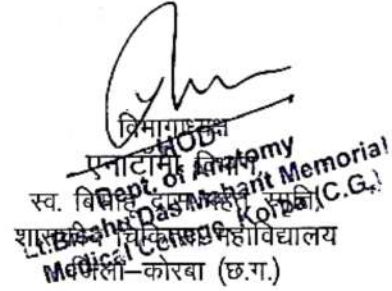 विभागाध्यक्ष
एनाटॉमी विभाग
स्व. बिसाहू दास महंत स्मृति
शासकीय चिकित्सा महाविद्यालय
जिला–कोरबा (छ.ग.)
HOD
Dept. of Anatomy
Lt. Bisahu Das Mahant Memorial
Medical College, Korba (C.G.)